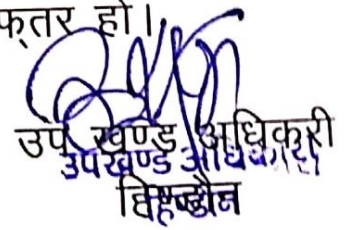 फ्तर हो।
उप खण्ड अधिकारी
उपखण्ड अधिकारी
हिण्डौन